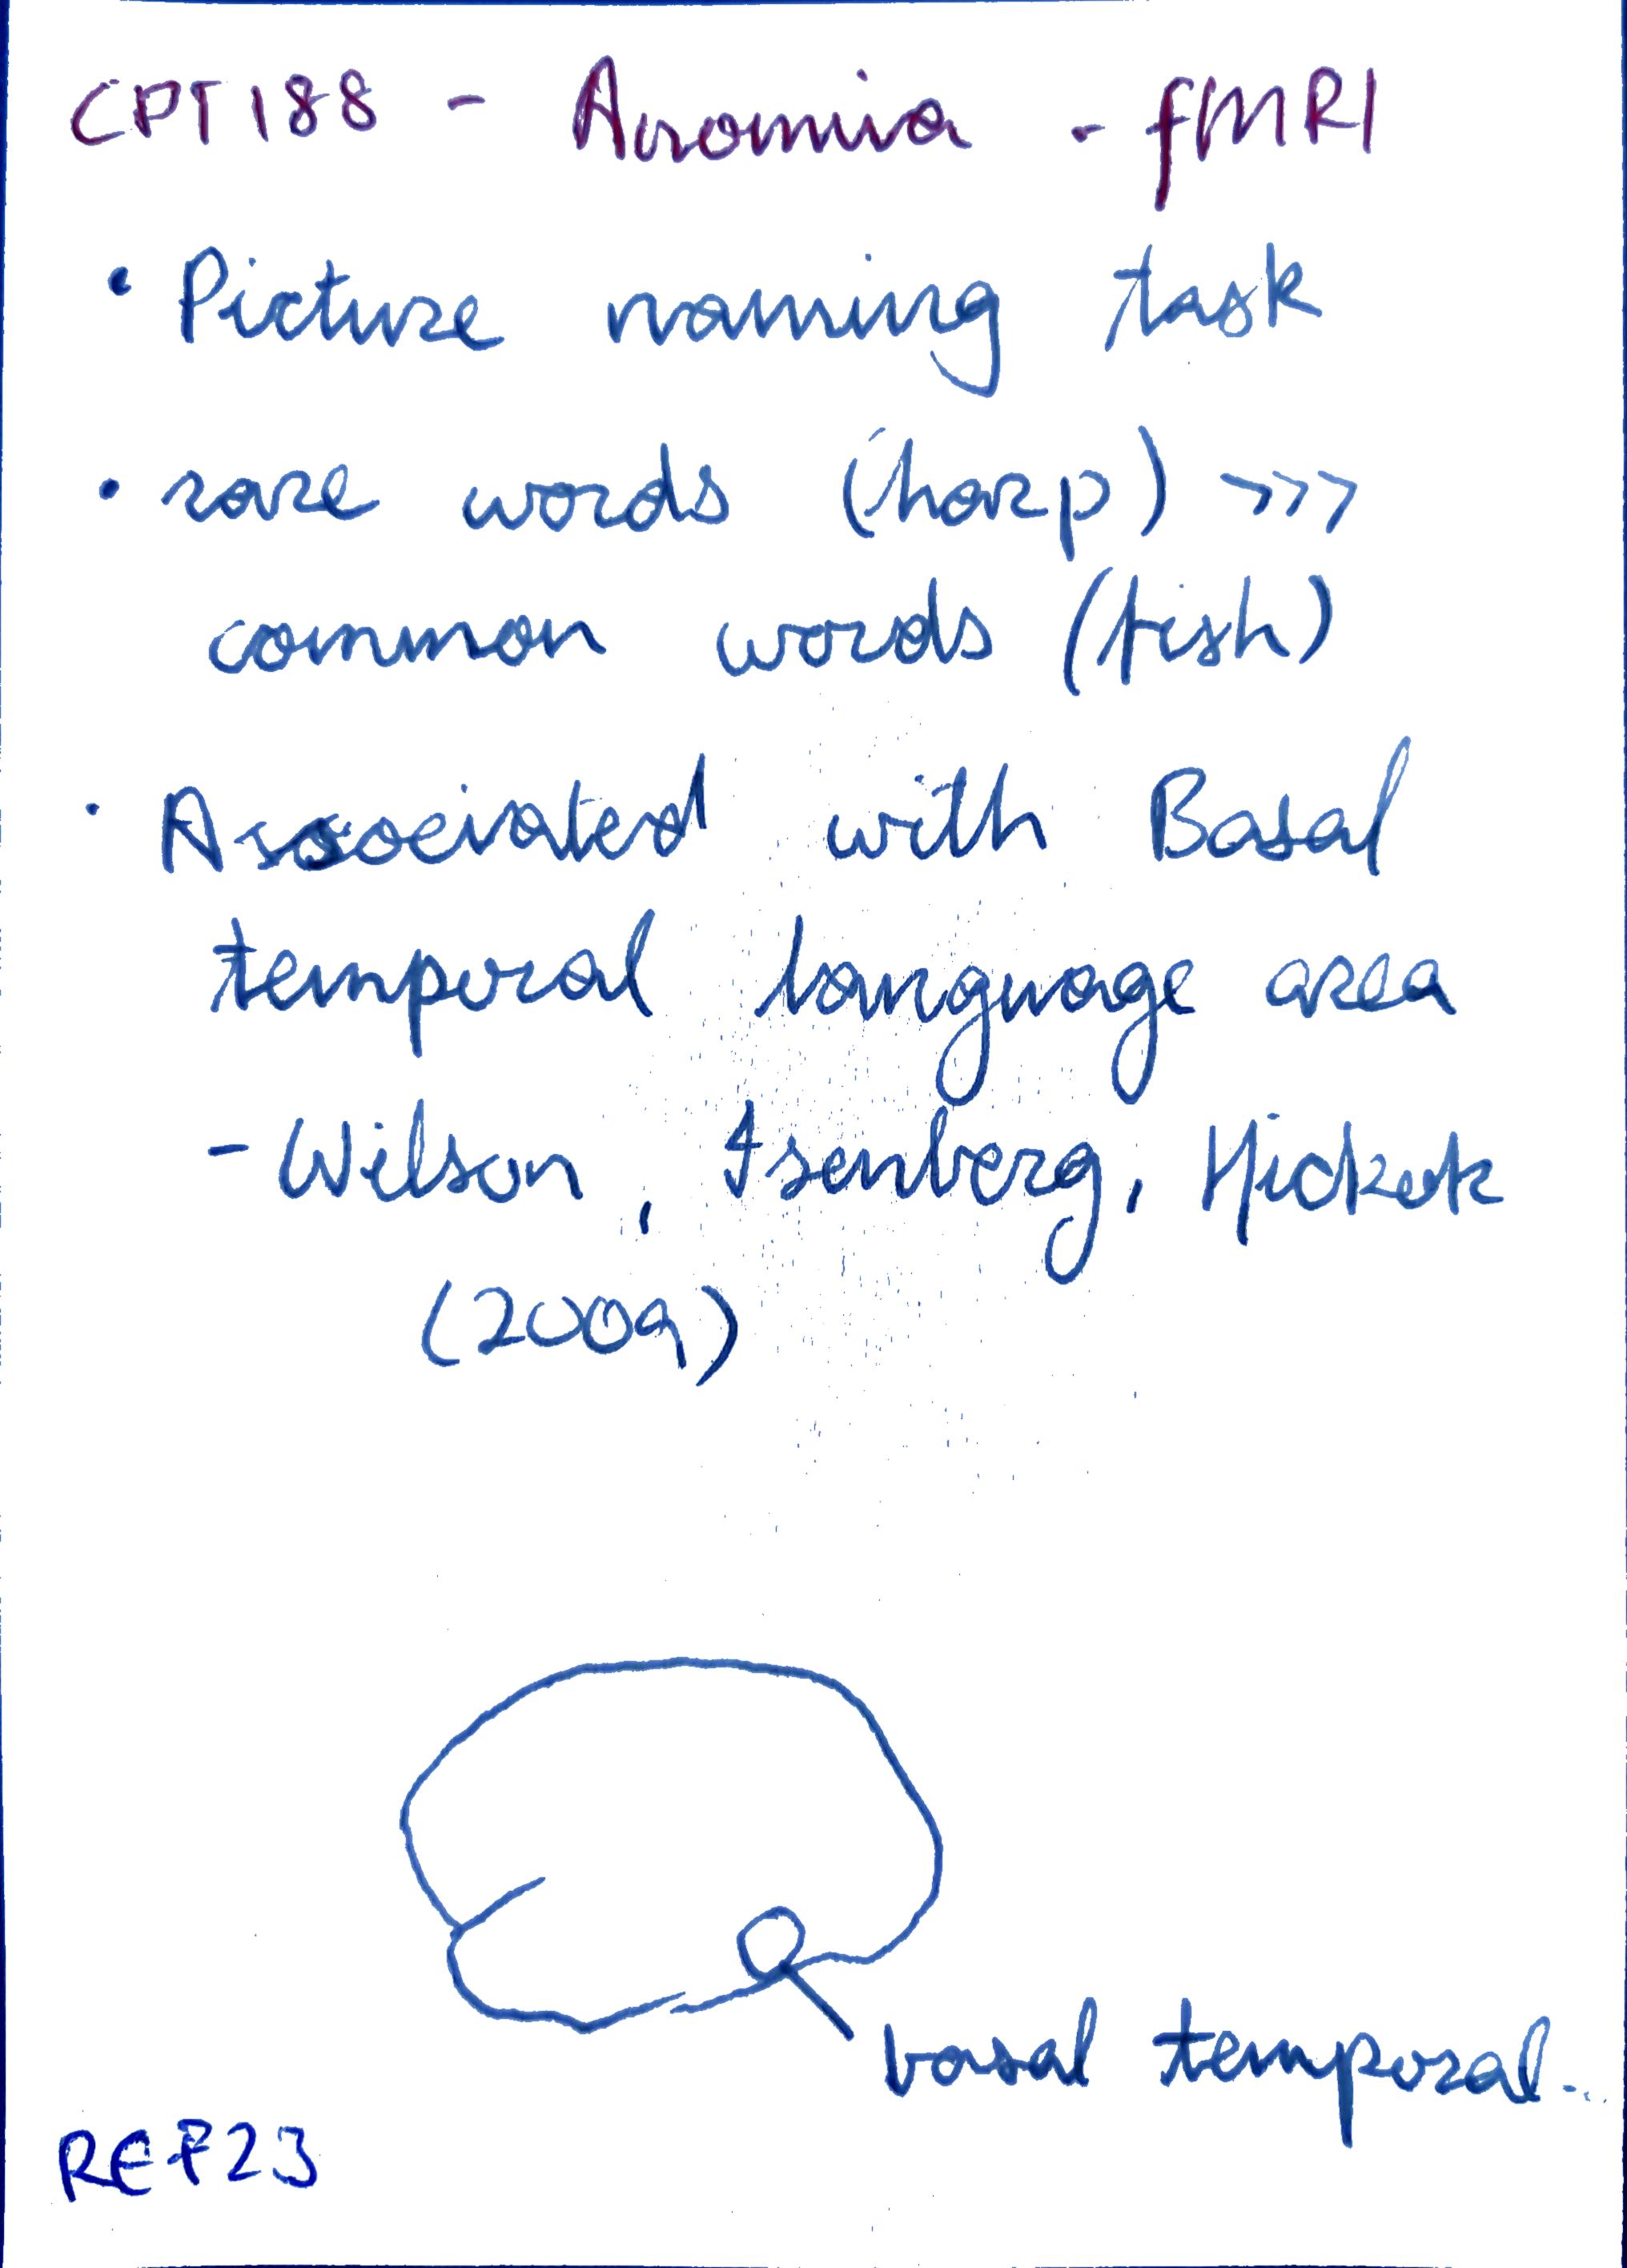 CPT188 - Anomia - fMRI
• Picture naming task
• rare words (harp) >>>
common words (fish)
• Associated with Basal
temporal language area
- Wilson, Isenberg, Hickok
(2009)
basal temporal...
REF23